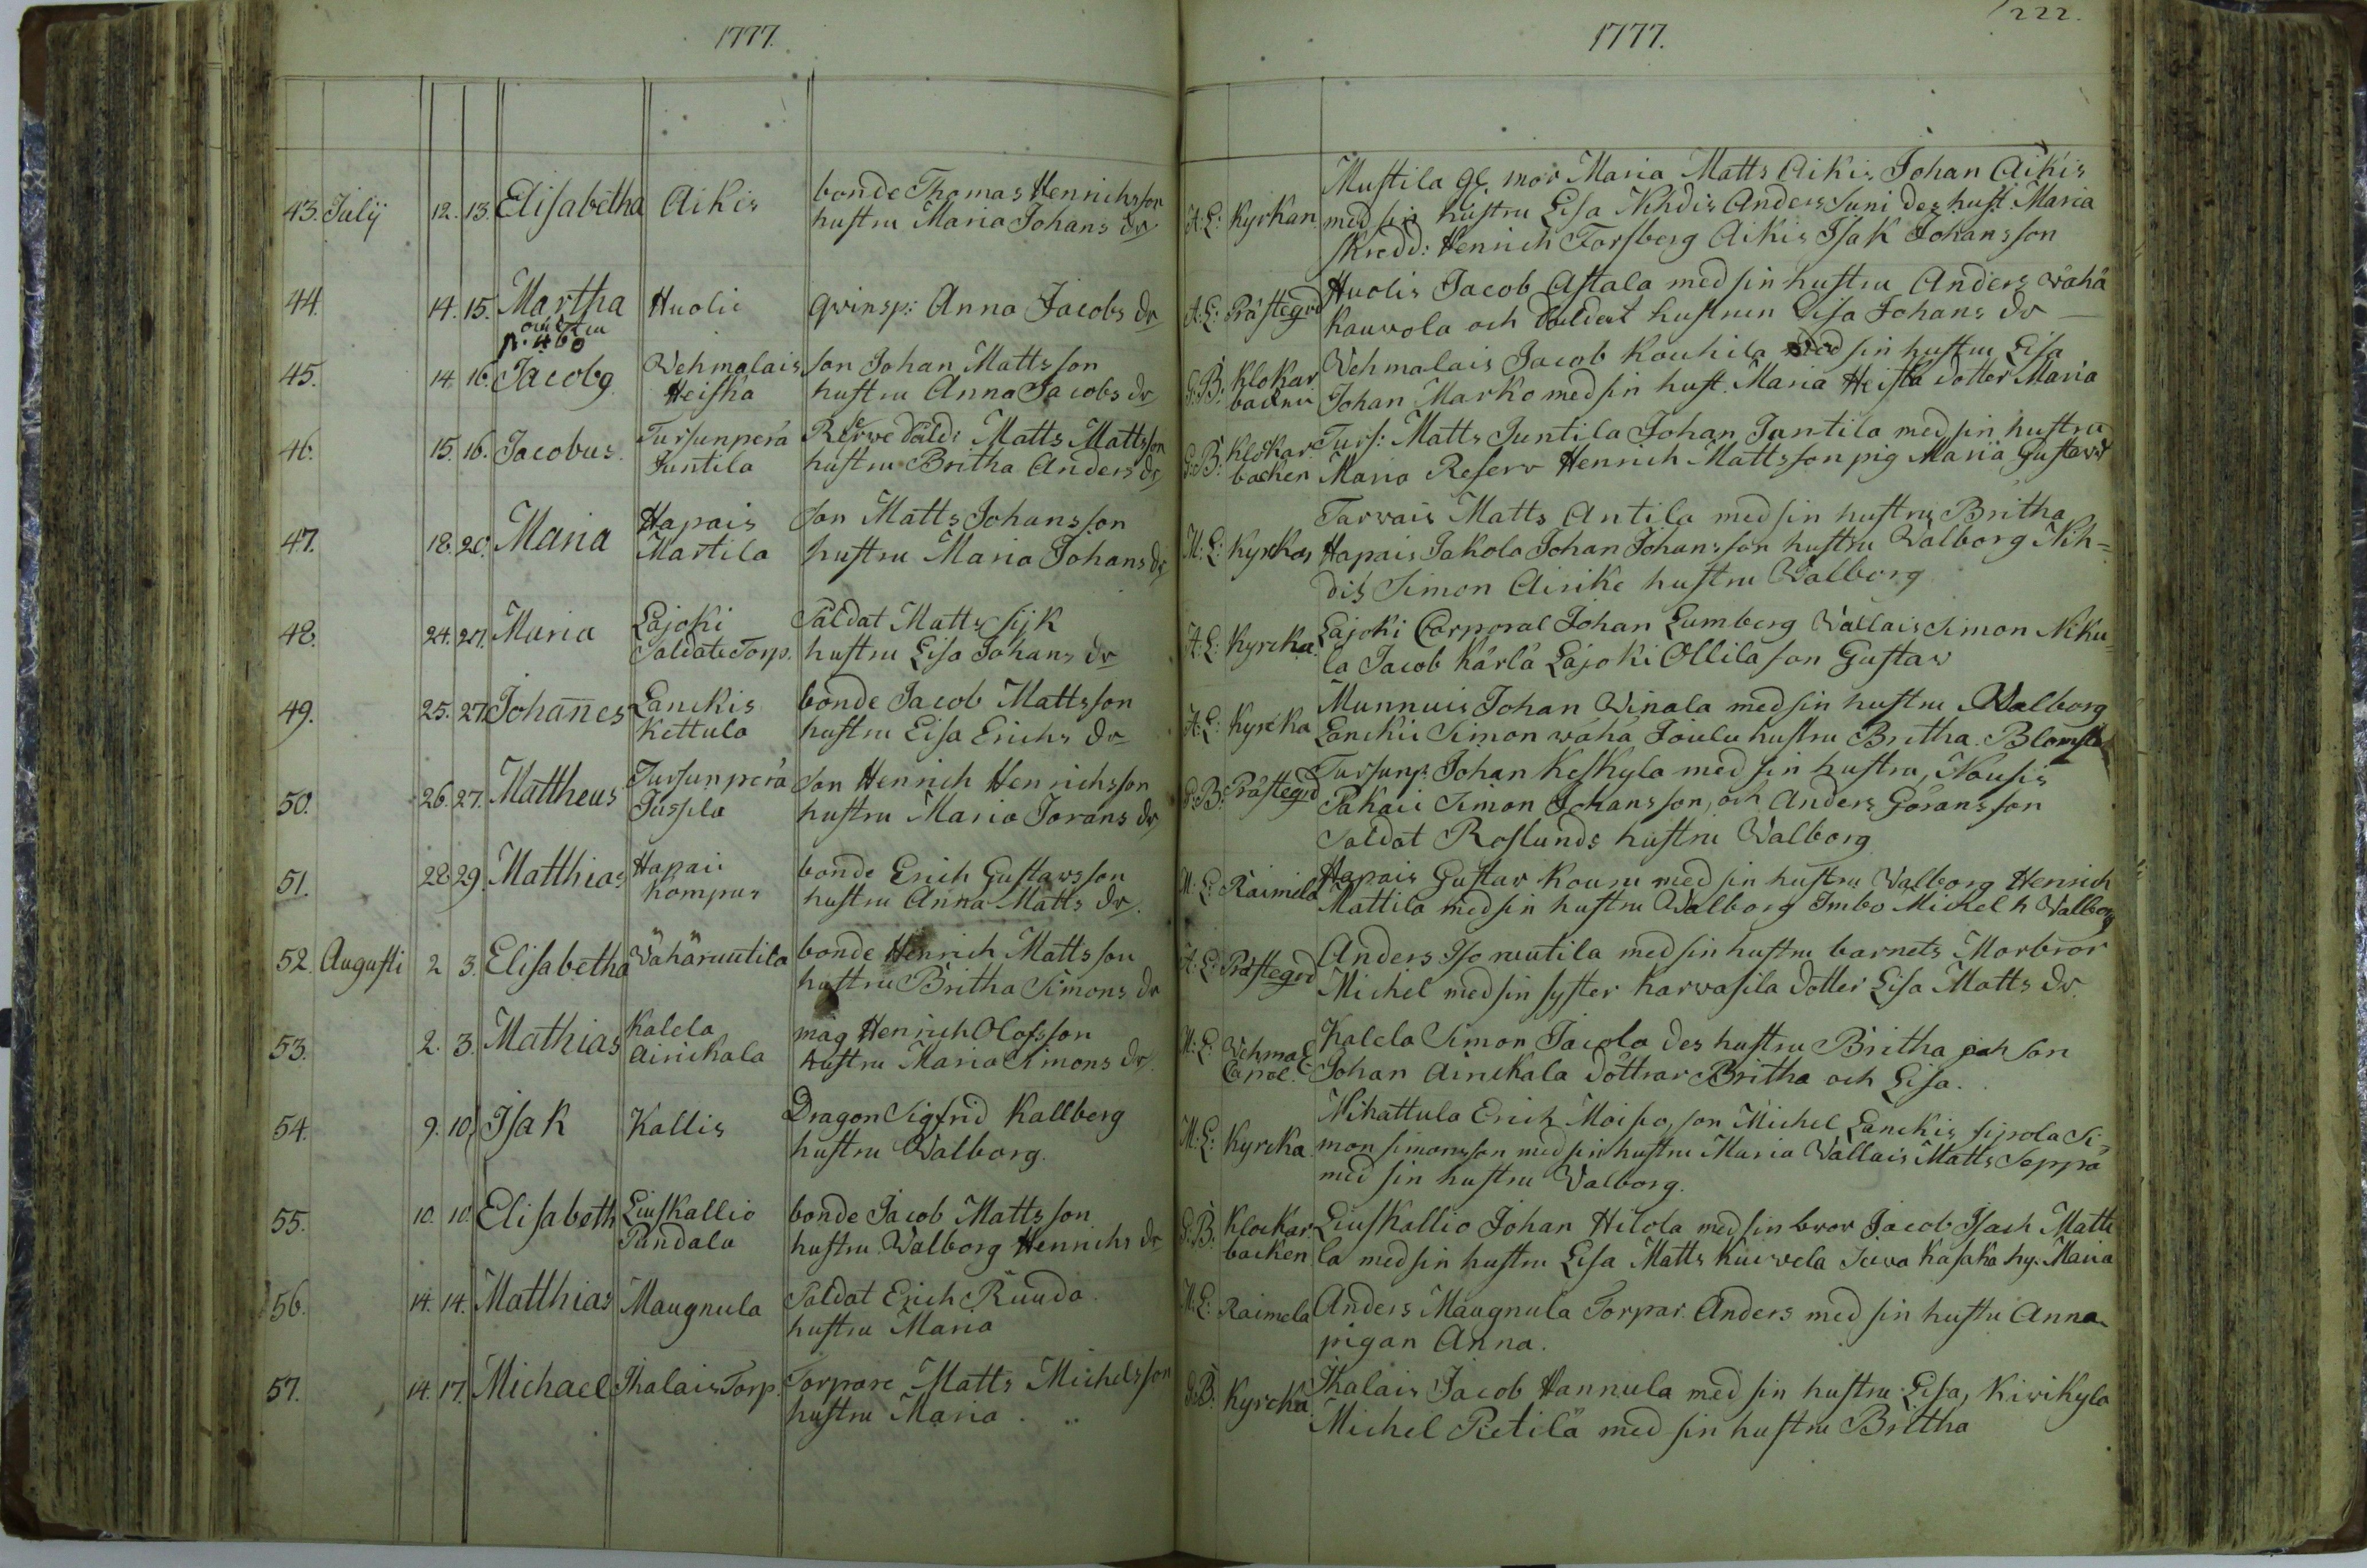 1777.
1777.
222.
43. Julÿ 12. 13. Elisabetha Aikis bonde Thomas Henrichsson
hustru Maria Johans dr
A: L: Kyrkan
Mustila gl. mor Maria Matts Aikis Johan Aikis
med sin hustru Lisa Nihdis Anders Suni des hust. Maria
Skredd: Henrich Forsberg Aikis Isak Johansson
44. 14. 15. Martha Huolii qvinsp: Anna Jacobs dr
oächta
p. 460
A: L: Prästegrd
Huolis Jacob Astala med sin hustru Anders wähä
Kauvola och Soldat hustrun Lisa Johans dr
45. 14. 16. Jacobg Vehmalais son Johan Mattsson
Heiska hustru Anna Jacobs dr
G: B: Klokar
backen
Vehmalais Jacob Kouhila med sin hustru Lisa
Johan Marko med sin hust. Maria Heiska dotter Maria
46. 15. 16. Jacobus Tursunperä Reserve Sold: Matts Mattsson
Juntila hustru Britha Anders dr
G: B: Klockar
backen
Turs: Matts Juntila Johan Juntila med sin hustru
Maria Reserv Henrich Mattsson pig Maria Gustavsdr
47. 18. 20. Maria Hapais son Matts Johansson
Martila hustru Maria Johans dr
M: L: Kyrckan
Tarvais Matts Antila med sin hustru Britha
Hapais Jakola Johan Johansson hustru Walborg Nih=
dis Simon Airike hustru Walborg
48. 24. 27. Maria Lajoki Saldat Matts Sijk
Saldate Torp. hustru Lisa Johans dr
A: L: Kyrcka
Lajoki Corporal Johan Lumberg Vallais Simon Niku=
la Jacob Kärlä Lajoki Ollila son Gustav
49. 25. 27. Johanes Lanckis bonde Jacob Mattsson
Kettula hustru Lisa Erichs dr
A: L: Kyrcka
Munnuis Johan Winala med sin hustru Walborg
Lanckii Simon wähä Joulu hustru Britha Blomst
50. 26. 27. Mattheus Tursunperä son Henrich Henrichsson
Jussila hustru Maria Jorans dr
G: B: Prästegrd
Tursunp: Johan Keskyla med sin hustru, Nousis
Pakaii Simon Johansson, och Anders Göransson
Soldat Roslunds hustru Walborg
51. 28. 29. Matthias Hapaii bonde Erich Gustavsson
Kompus hustru Anna Matts dr.
M: L: Raimela
Hapais Gustav Kouru med sin hustru Valborg Henrich
Mattila med sin hustru Walborg Imbo Michel h Valborg
52. Augusti 2. 3. Elisabetha Vähäruutila bonde Henrich Mattsson
hustru Britha Simons dr
A: L: Prästegrd
Anders Iso ruutila med sin hustru barnets Morbror
Michel med sin syster Karvasila dotter Lisa Matts dr.
53. 2. 3. Mathias Kalela måg Henrich Olofsson
Ainikala hustru Maria Simons dr.
M: L: Vehmal
Capal.
Kalela Simon Jacola des hustru Britha och son
Johan Ainikala döttrar Britha och Lisa.
54. 9. 10. Isak Kallis Dragon Sigfrid Kallberg
hustru Walborg.
M: L: Kyrcka
Nihattula Erich Moisio, son Michel Lanckis sipola Si=
mon simonsson med sin hustru Maria Vallais Matts Seppä
med sin hustru Valborg.
55. 10. 10. Elisabeth Liuskallio bonde Jacob Mattsson
Pundala hustru Valborg Henrichs dr
G: B: Klockar
backen
Liuskallio Johan Hilola med sin bror Jacob Isach Matti
la med sin hustru Lisa Matts Kuivela Kasaka hy. Maria
56. 14. 14. Matthias Maugnula Soldat Erich Ruuda
hustru Maria
M: L: Raimela
Anders Maugnula Torpar Anders med sin hustru Anna
pigan Anna.
57. 14. 17. Michael Ihalais Torp. Torpare Matts Michelsson
hustru Maria
G: B: Kyrcka
Ihalais Jacob Hannula med sin hustru Lisa, Kirikyla
Michel Pietilä med sin hustru Britha